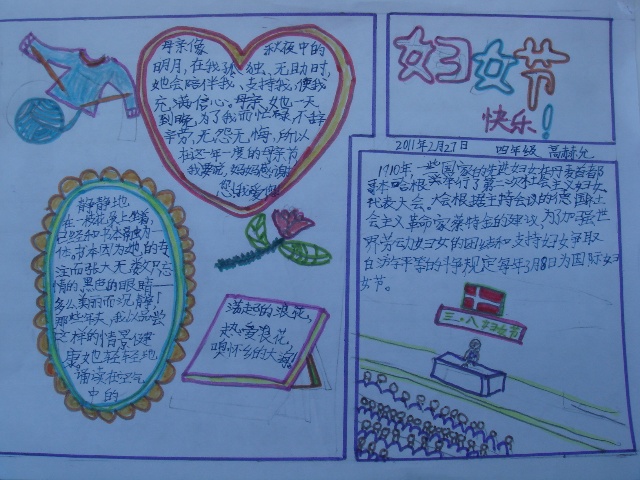 妇女节
快乐!
2011年2月27日 四年级
母亲像 秋夜中的
明月,在我孤独、无助时,
她会陪伴我、支持我,使我
充满信心。母亲,她一天
到晚,为了我而忙碌,不辞
辛劳,无怨无悔,所以
在这一年一度的母亲节
我要说,妈妈感谢
您,我爱您
静静地
书本因为她的专
注而张大无数只忘
情的、黑色的眼睛——
多么美丽而沉静!
那些年来,我以为
这样的情景健
康地轻轻地
诵读在空气
中的
满起的浪花,
热爱浪花,
嗅怀乡的大海!
1910年,一些国家的先进妇女在丹麦首都
哥本哈根举行了第二次社会主义妇女
代表大会。大会根据主持会议的德国社
会主义革命家蔡特金的建议,为加强世
界劳动妇女的团结和支持妇女争取
自由平等的斗争,规定每年3月8日为国际妇
女节。
三·八妇女节